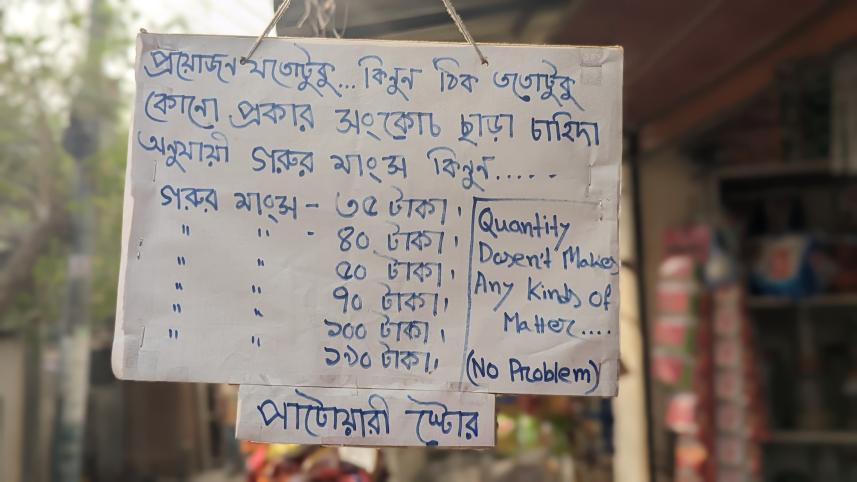 প্রয়োজন যতোটুকু... কিনুন ঠিক ততোটুকু
কোনো প্রকার সংকোচ ছাড়া চাহিদা
অনুযায়ী গরুর মাংস কিনুন......
গরুর মাংস - ৩৫ টাকা।
" " - ৪০ টাকা।
" " ৫০ টাকা।
" " ৭০ টাকা।
" " ১০০ টাকা।
" " ১১০ টাকা।
Quantity
Dosen't Makes
Any Kinds of
Matter....
(No Problem)
পাটোয়ারী স্টোর